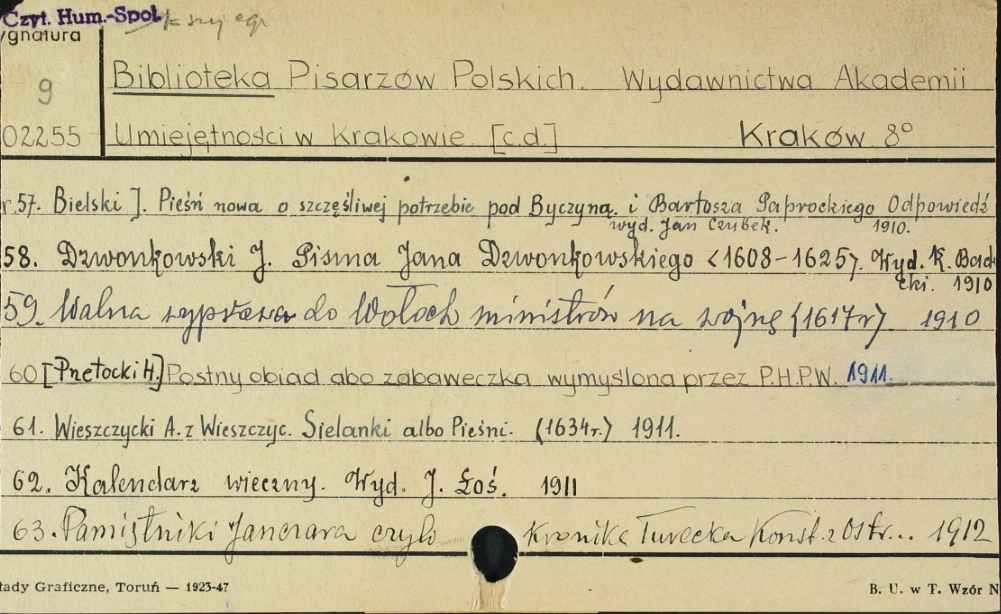 Czyt. Hum.-Społ.
ygnatura
9
02255
Biblioteka Pisarzów Polskich. Wydawnictwa Akademii
Umiejętności w Krakowie. [c.d.] Kraków 8°
r 57. Bielski J. Pieśń nowa o szczęśliwej potrzebie pod Byczyną. i Bartosza Paprockiego Odpowiedź
wyd. Jan Czubek. 1910.
58. Dzwonkowski J. Pisma Jana Dzwonkowskiego <1608-1625>. Wyd. K. Bad
cki. 1910
59. Walna wyprawa do Wołoch ministrów na wojnę (1617r) 1910
60 [Przetocki H.] Postny obiad abo zabaweczka wymyślona przez P.H.P.W. 1911.
61. Wieszczycki A. z Wieszczyc. Sielanki albo Pieśni. (1634r.) 1911.
62. Kalendarz wieczny. Wyd. J. Łoś. 1911
63. Pamiętniki Janczara czyli Kronika Turecka Konst. z Ostr... 1912
łady Graficzne, Toruń — 1923-47
B. U. w T. Wzór N